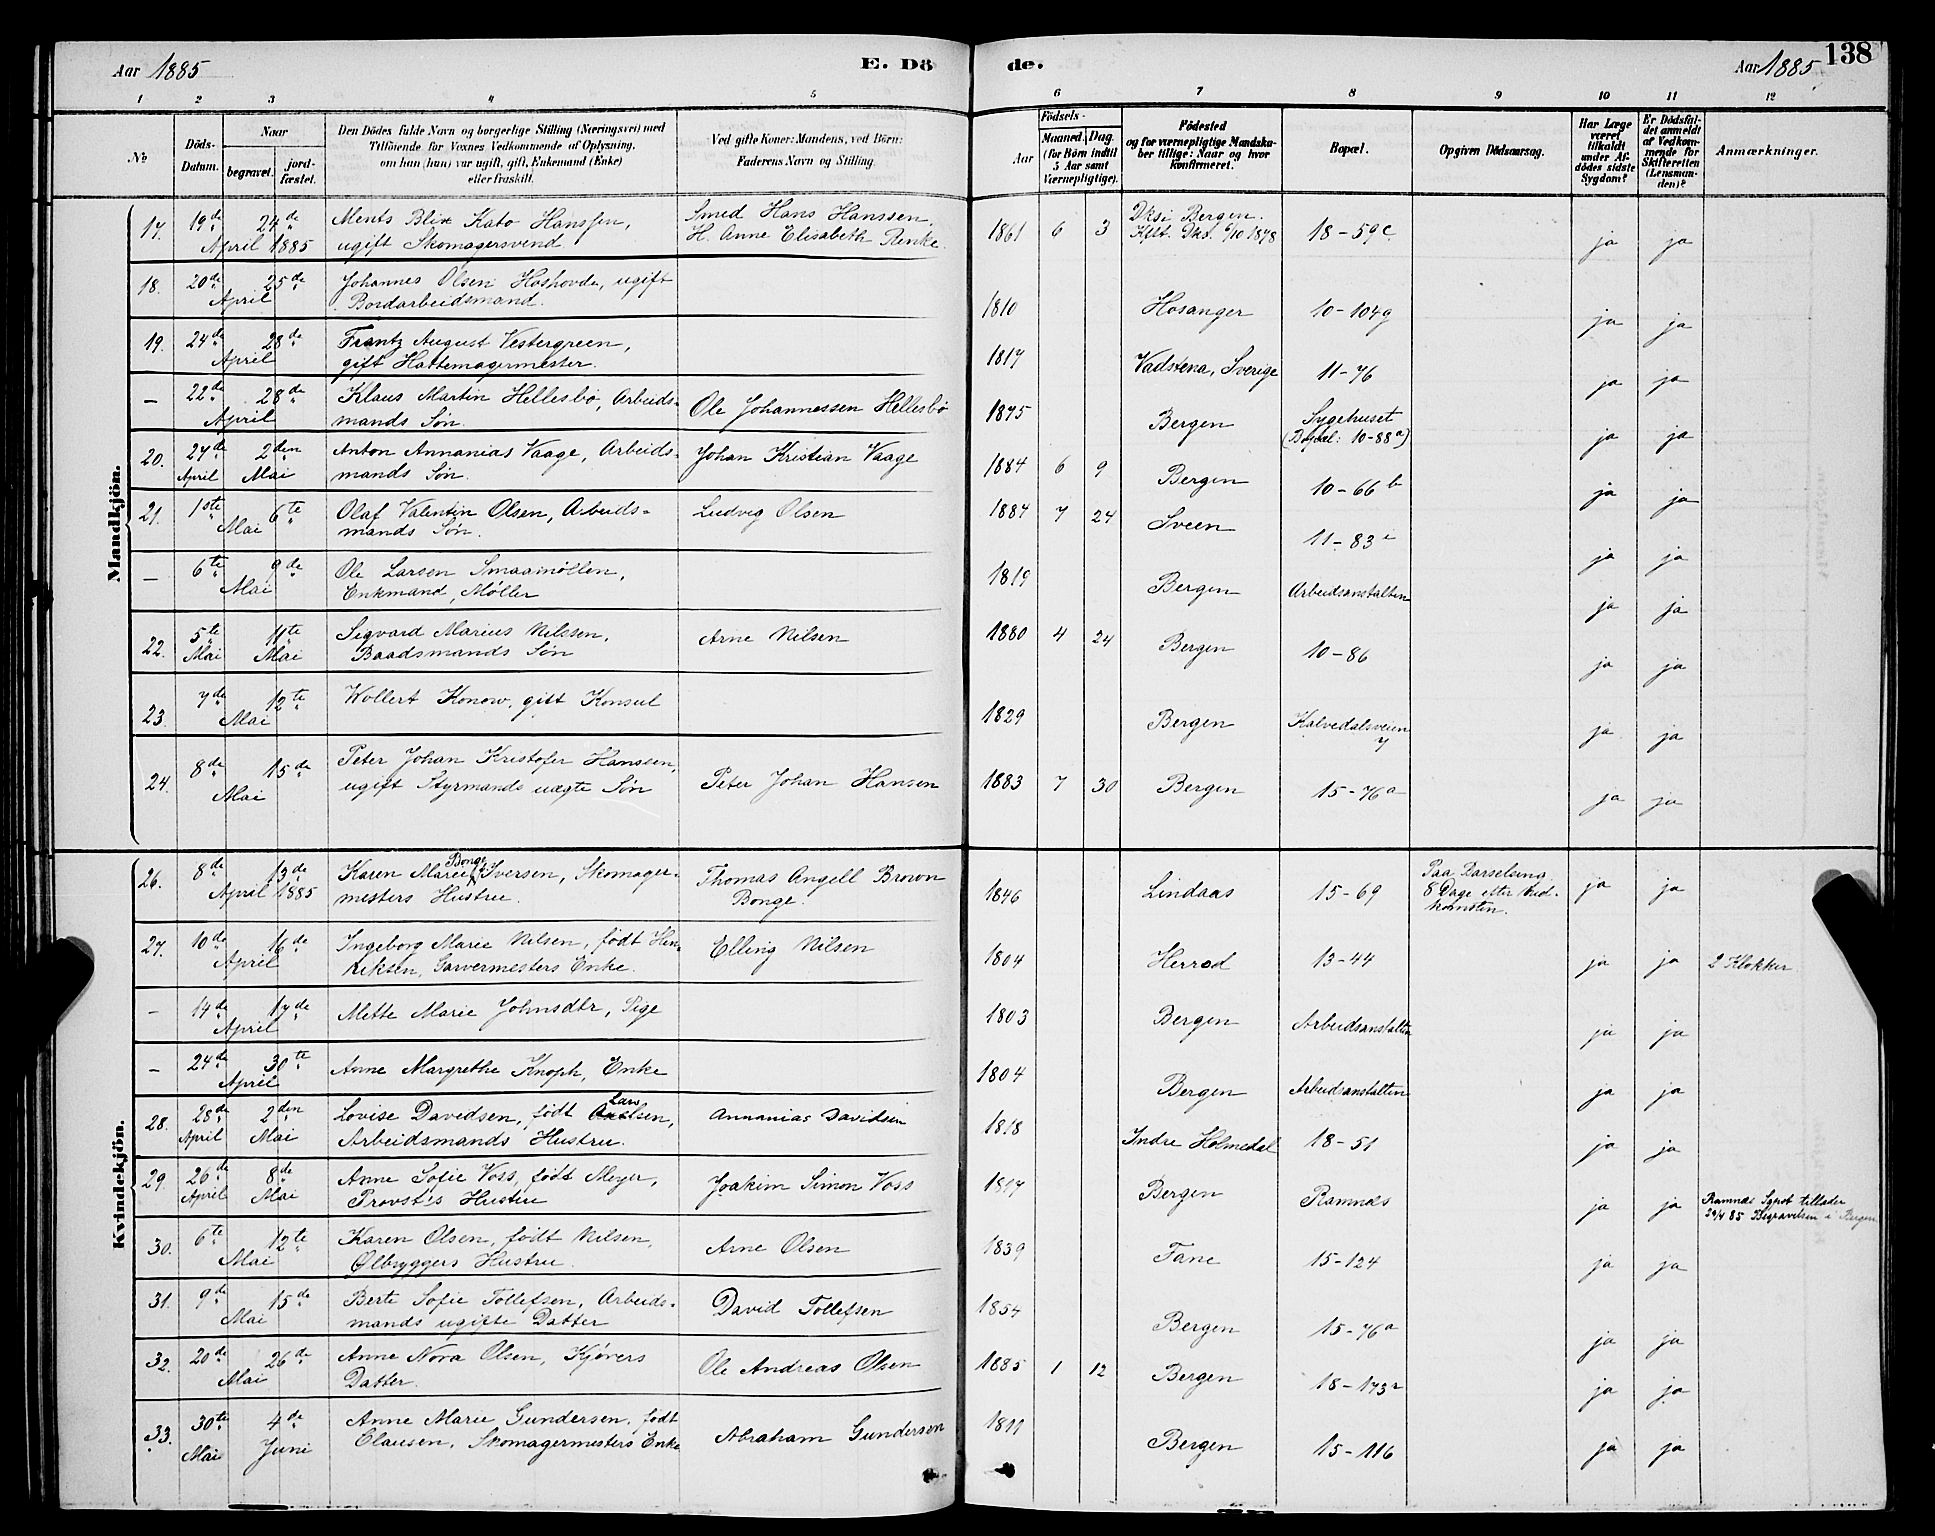 Aar 1885
E. Dö
de.
Aar 1885
138
1 2 3 4 5 6 7 8 9 10 11 12
No
Döds-
Datum.
Naar
begravet.
jord-
fæstet.
Den Dödes fulde Navn og borgerlige Stilling (Næringsvei) med
Tilföiende for Voxnes Vedkommende af Oplysning,
om han (hun) var ugift, gift, Enkemand (Enke)
eller fraskilt.
Ved gifte Koner: Mandens, ved Börn:
Faderens Navn og Stilling.
Födsels-
Aar
Maaned. Dag.
(for Börn indtil
5 Aar samt
Værnepligtige).
Födested
og for værnepligtige Mandska-
ber tillige: Naar og hvor
konfirmeret.
Bopæl.
Opgiven Dödsaarsag.
Har Læge
været
tilkaldt
under Af-
dödes sidste
Sygdom?
Er Dödsfal-
det anmeldt
af Vedkom-
mende for
Skifteretten
(Lensman-
den)?
Anmærkninger.
Mandkjön.
17. 19de 24de Ments Blix Kato Hanssen, Smed Hans Hanssen, 1861 6 3 Dksi Bergen. 18-59c. ja ja
April 1885 ugift Skomagersvend H. Anne Elisabeth Renke. Kfst. Dks. 6/10 1878
18. 20de 25de Johannes Olsen Hoshovde, ugift 1810 Hosanger 10-104g ja ja
April Bordarbeidsmand.
19. 24de 28de Frantz August Vestergreen, 1817 Vadstena, Sverige 11-76 ja ja
April gift Hattemagermester.
– 22de 28de Klaus Martin Hellesbö, Arbeids- Ole Johannessen Hellesbö 1875 Bergen Sygehuset ja ja
April mands Søn. (Bopæl: 10-88a)
20. 27de 2den Anton Annanias Vaage, Arbeids- Johan Kristian Vaage 1884 6 9 Bergen 10-66b ja ja
April Mai mands Søn.
21. 1ste 6te Olaf Valentin Olsen, Arbeids- Ludvig Olsen 1884 7 24 Sveen 11-83i ja ja
Mai mands Søn.
– 6te 9de Ole Larsen Smaamöllen, 1819 Bergen Arbeidsanstalten ja ja
Mai Enkmand, Møller
22. 5te 11te Sigvard Marius Nilssen, Arne Nilsen 1880 4 24 Bergen 10-86 ja ja
Mai Mai Baadsmands Søn
23. 7de 12te Wollert Konow, gift Konsul 1829 Bergen Kalvedalsveien ja ja
Mai 7
24. 8de 15de Peter Johan Kristofer Hanssen, Peter Johan Hansen 1883 7 30 Bergen 15-76a ja ja
Mai ugift Styrmands uægte Søn
Kvindekjön.
26. 8de 13de Karen Marie Bonge f. Iversen, Skomager- Thomas Angell Brown 1846 Lindaas 15-69 Paa Barselseng ja ja
April 1885 mesters Hustru. Bonge. 8 Dage efter Ned-
komsten.
27. 10de 16de Ingeborg Marie Nilsen, født Hen- Elling Nilsen 1804 Herrød 13-44 ja ja 2 Klokker
April riksen, Garvermesters Enke.
– 14de 17de Mette Marie Johnsdtr, Pige 1803 Bergen Arbeidsanstalten ja ja
April
– 24de 30te Anne Margrethe Knoph, Enke 1804 Bergen Arbeidsanstalten ja ja
April
28. 28de 2den Lovise Davedsen, født Larssen, Annanias Davidsen 1818 Indre Holmedal 18-51 ja ja
April Mai Arbeidsmands Hustru.
29. 26de 8de Anne Sofie Voss, født Meyer, Joakim Simon Voss 1817 Bergen Ramnæs ja ja Ramnæs Sgpst tillader
April Mai Provst's Hustru 29/4 85 Begravelsen i Bergen
30. 6te 12te Karen Olsen, født Nilsen, Arne Olsen 1839 Fane 15-124 ja ja
Mai Ølbryggers Hustru.
31. 9de 15de Berte Sofie Tollefsen, Arbeids- David Tollefsen 1854 Bergen 15-76a ja ja
Mai mands ugifte Datter
32. 20de 26de Anne Nora Olsen, Kjørers Ole Andreas Olsen 1885 1 12 Bergen 18-173 ja ja.
Mai Datter.
33. 30te 4de Anne Marie Gundersen, født Abraham Gundersen 1811 Bergen 15-116 ja ja
Mai Juni Clausen, Skomagermesters Enke